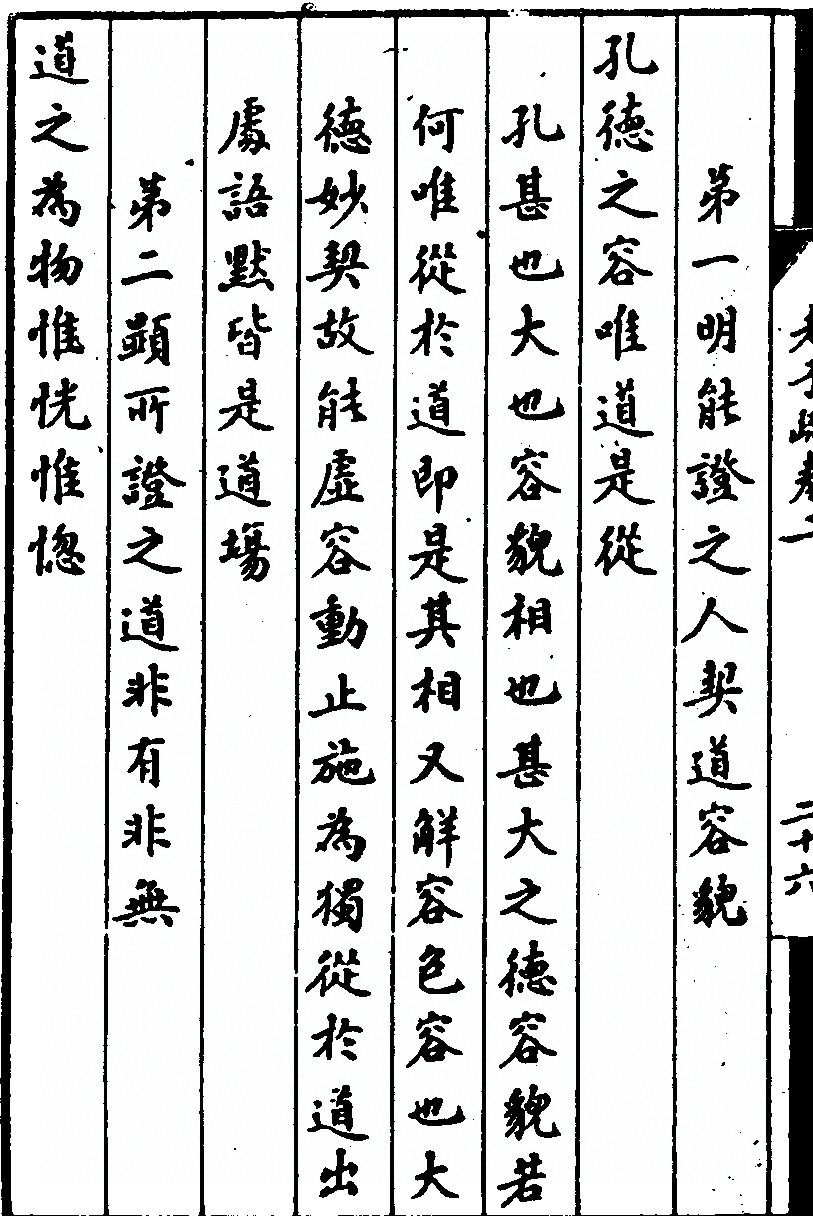 老子疏卷二
二十六
第一明能證之人契道容貌
孔德之容唯道是從
孔甚也大也容貌相也甚大之德容貌若
何唯從於道即是其相又解容色容也大
德妙契故能虛容動止施為獨從於道出
處語默皆是道場
第二顯所證之道非有非無
道之為物惟恍惟惚